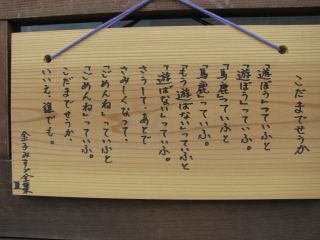 こだまでせうか
「遊ぼう」っていふと
「遊ぼう」っていふ。
「馬鹿」っていふと
「馬鹿」っていふ。
「もう遊ばない」っていふと
「遊ばない」っていふ。
さうして、あとで
さみしくなって、
「ごめんね」っていふと
「ごめんね」っていふ。
こだまでせうか、
いいえ、誰でも。
金子みすゞ全集 Ⅲ